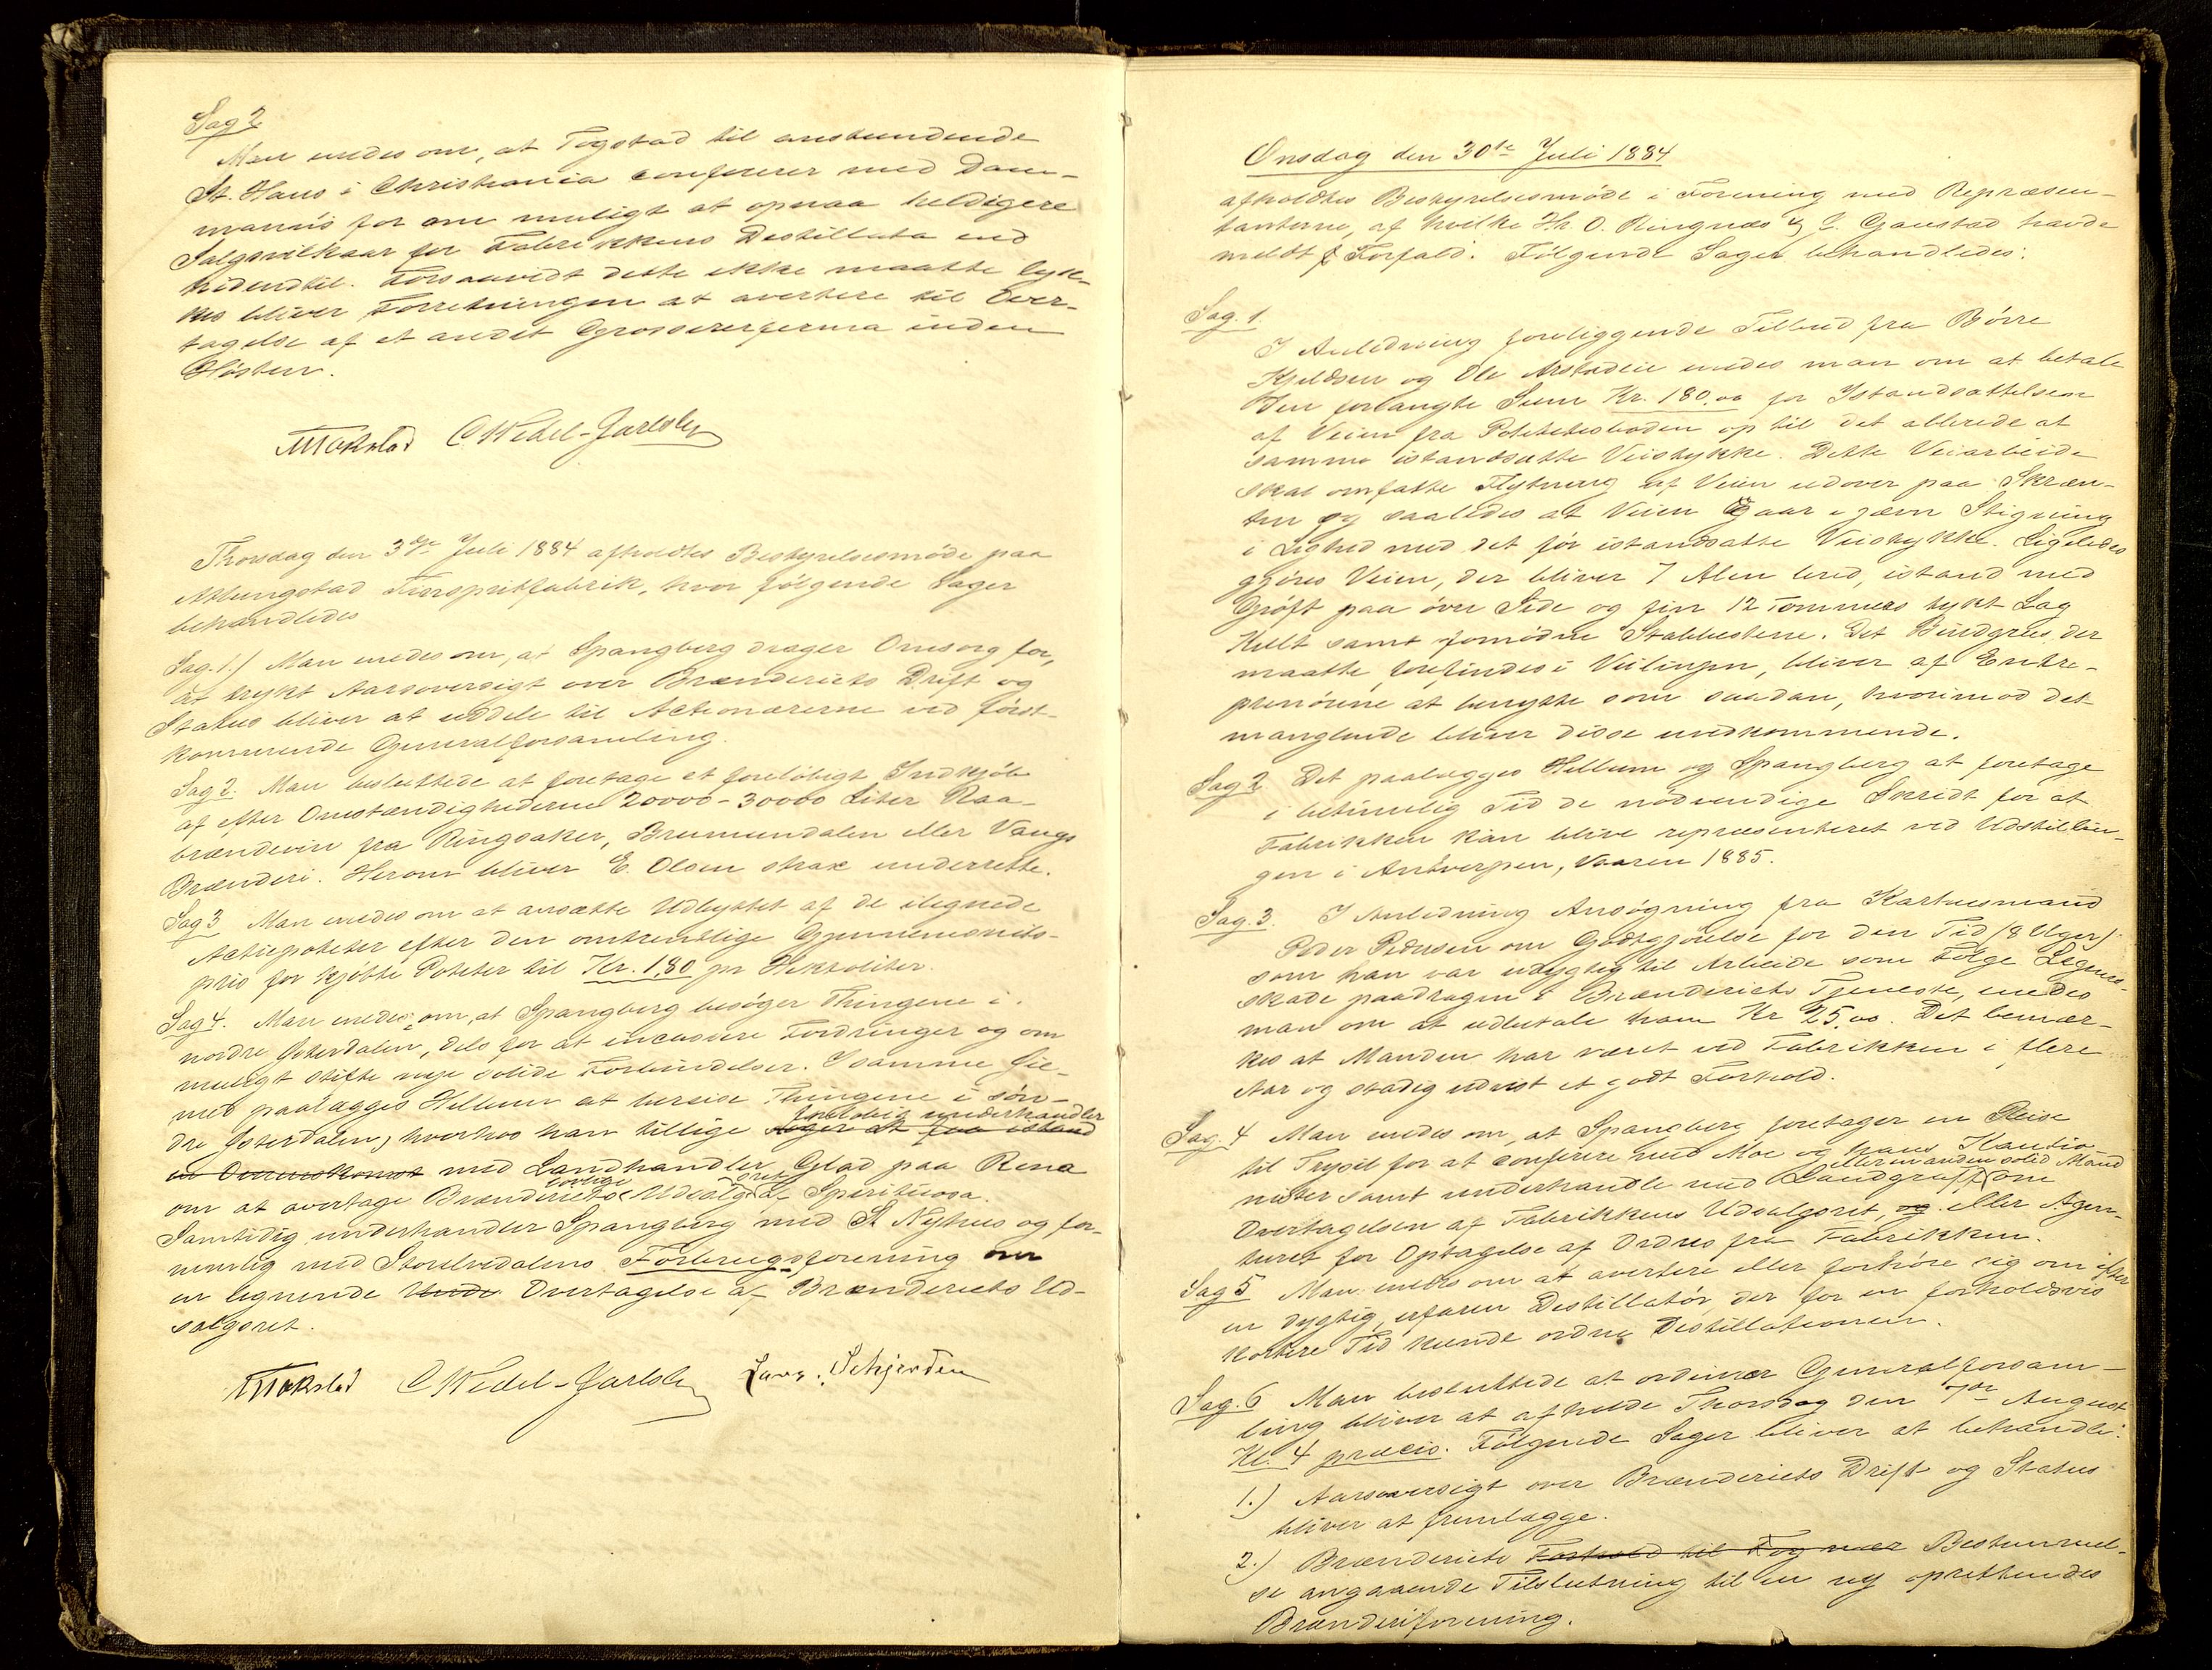 Sag 2
Man enedes om, at Fogstad til anstundende
St. Hans i Christiania confererer med Dam-
mann's for om muligt at opnaa heldigere
Salgsvilkaar for Fabrikkens Destillata end
hidindtil. Forsaavidt dette ikke maatte lyk-
kes bliver Forretningen at avertere til Over-
tagelse af et andet Grossererfirma inden
Høsten.
C Wedel-Jarlsberg
Thorsdag den 3die Juli 1884 afholdtes Bestyrelsesmøde paa
Atlungstad Finspritfabrik, hvor følgende Sager
behandledes
Sag. 1.) Man enedes om, at Spangberg drager Omsorg for,
at trykt Aarsoversigt over Brænderiets Drift og
Status bliver at uddele til Actionærerne ved først-
kommende Generalforsamling.
Sag 2. Man besluttede at foretage et foreløbigt Indkjøb
af efter Omstændighederne 20000-30000 Liter Raa-
brændevin fra Ringsaker, Brumundalen eller Vangs
Brænderi. Herom bliver E. Olsen strax underrette.
Sag 3 Man enedes om at ansætte Udbyttet af de ilignede
Actiepoteter efter den omtrentlige Gjennemsnits-
pris for kjøbte Poteter til Kr. 1,80 pr Hektoliter.
Sag 4. Man enedes om, at Spangberg besøger Thingene i
nordre Østerdalen, dels for at incassere Fordringer og om
muligt stifte nye solide Forbindelser. I samme Øie-
med paalægges Hellum at bereise Thingene i søn-
foreløbig underhandler
dre Østerdalen, hvorhos han tillige søger at faa istand
en Overenskomst med Landhandler Glad paa Rena
om at overtage Brænderiets Udsalgsret af Spirituosa.
Samtidig underhandler Spangberg med St Nyhus og for-
nemlig med Storelvedalens Forbrugsforening om
en lignende Overtagelse af Brænderiets Ud-
salgsret.
C Wedel-Jarlsberg Lars. Schjerden
Onsdag den 30te Juli 1884
afholdtes Bestyrelsesmøde i Forening med Repræsen-
tanterne, af hvilke Hr. O. Ringnes og L. Gaustad havde
meldt Forfald. Følgende Sager behandledes:
Sag. 1
I Anledning foreliggende Tilbud fra Børre
Kjeldsen og Ole Arstadeie enedes man om at betale
den forlangte Sum Kr. 180.00 for Istandsættelsen
af Veien fra Potetesboden op til det allerede at
samme istandsatte Veistykke. Dette Veiarbeide
skal omfatte Flytning af Veien udover paa Skræn-
ten og saaledes at Veien gaar i jævn Stigning
i Lighed med det før istandsatte Veistykke. Ligeledes
gjøres Veien, der bliver 7 Alen bred, istand med
Grøft paa øvre Side og fin 12 Tommers tykt Lag
Kult samt fornødne Stabbestene. Det Bindgrus der
maatte forefindes i Veilinjen, bliver af Entre-
prenørene at benytte som saadan, hvorimod det
manglende bliver disse uvedkommende.
Sag 2 Det paalægges Hellum og Spangberg at foretage
i betimelig Tid de nødvendige Skridt for at
Fabrikken kan blive repræsenteret ved Udstillin-
gen i Antverpen, Vaaren 1885.
Sag. 3. I Anledning Ansøgning fra Karhusmand
Peder Pedersen om Godtgjørelse for den Tid (8 Uger)
som han var udygtig til Arbeide som Følge Legems-
skade paadragen i Brænderiets Tjeneste, enedes
man om at udbetale ham Kr 25,00. Det bemær-
kes at Manden har været ved Fabrikken i flere
Aar og stadig udvist et godt Forhold.
Sag. 4 Man enedes om, at Spangberg foretager en Reise
til Trysil for at conferere med Moe og hans Kautio-
eller en anden solid Mand
nister samt underhandle med Landgraff om
Overtagelsen af Fabrikkens Udsalgsret, og eller Agen-
turet for Optagelse af Ordres fra Fabrikken.
Sag 5 Man enedes om at avertere eller forhøre sig om efter
en dygtig, erfaren Destillatør, der for en forholdsvis
kortere Tid kunde ordne Destillationen.
Sag. 6 Man besluttede at ordinær Generalforsam-
ling bliver at afholde Thorsdag den 7de August
Kl. 4 præcis. Følgende Sager bliver at behandle:
1.) Aarsoversigt over Brænderiets Drift og Status
bliver at fremlægge.
2.) Brænderiets Forhold til Bestemmel-
se angaaende Tilslutning til en ny oprettendes
Brænderiforening.